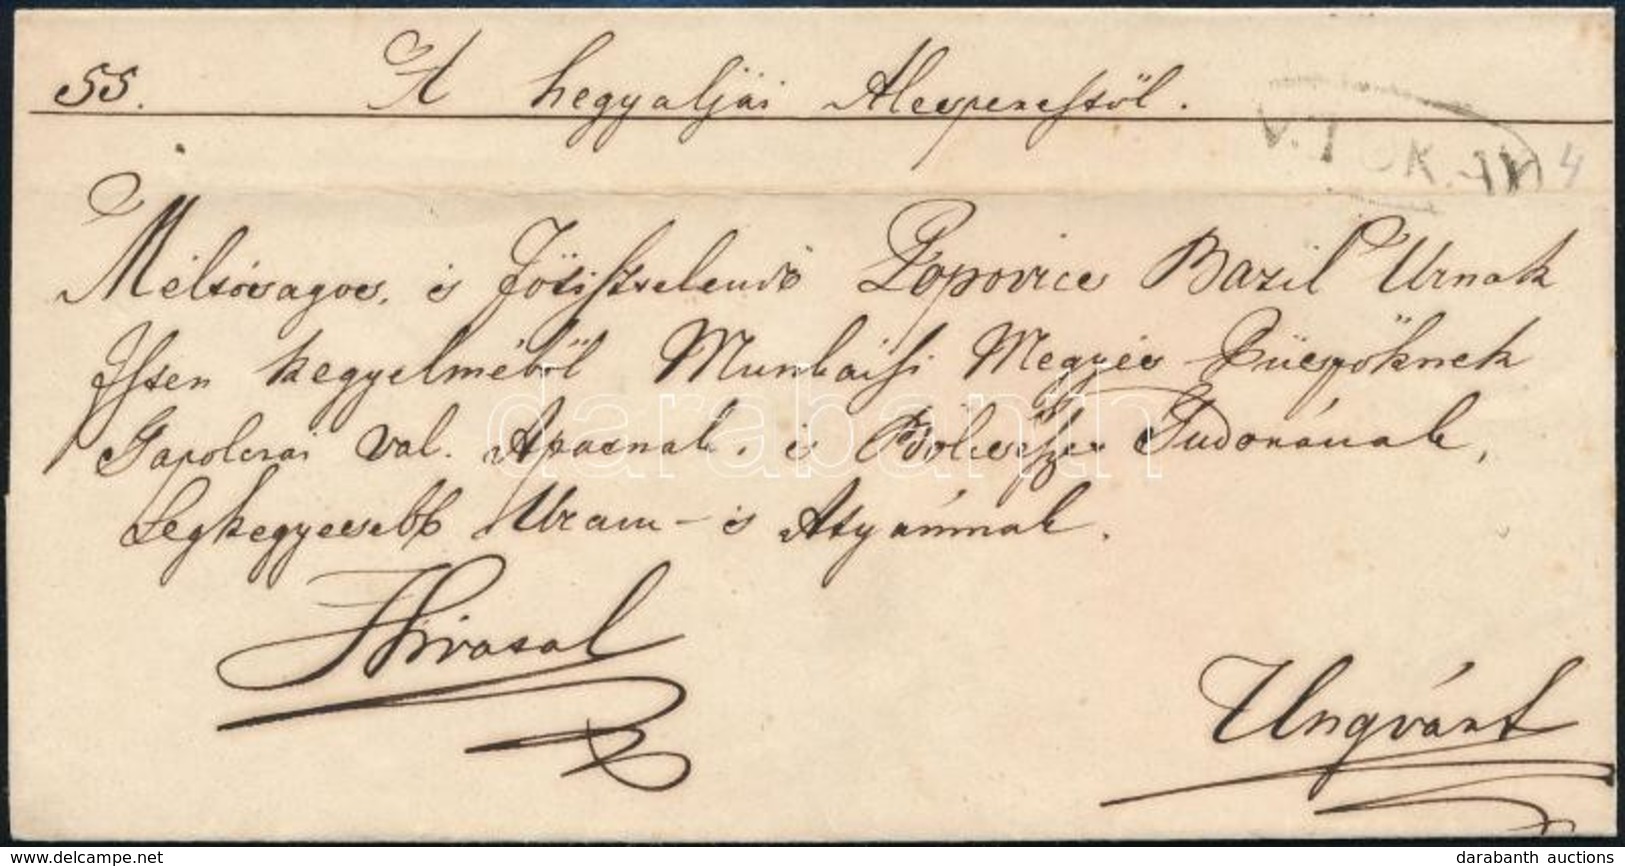 55. A hegyaljai Alesperestöl.
V. TOKAJ
4
Méltóságos, és Fötisztelendö Popovics Bazil Urnak
Isten kegyelméböl Munkácsi Megyés Püspöknek
Tapolczai Val. Apátnak, és Bölcsész Tudorának,
Legkegyesebb Uram- és Atyámnak.
Hivatal
Ungvárt
darabanth
delcampe.net
darabanth auctions